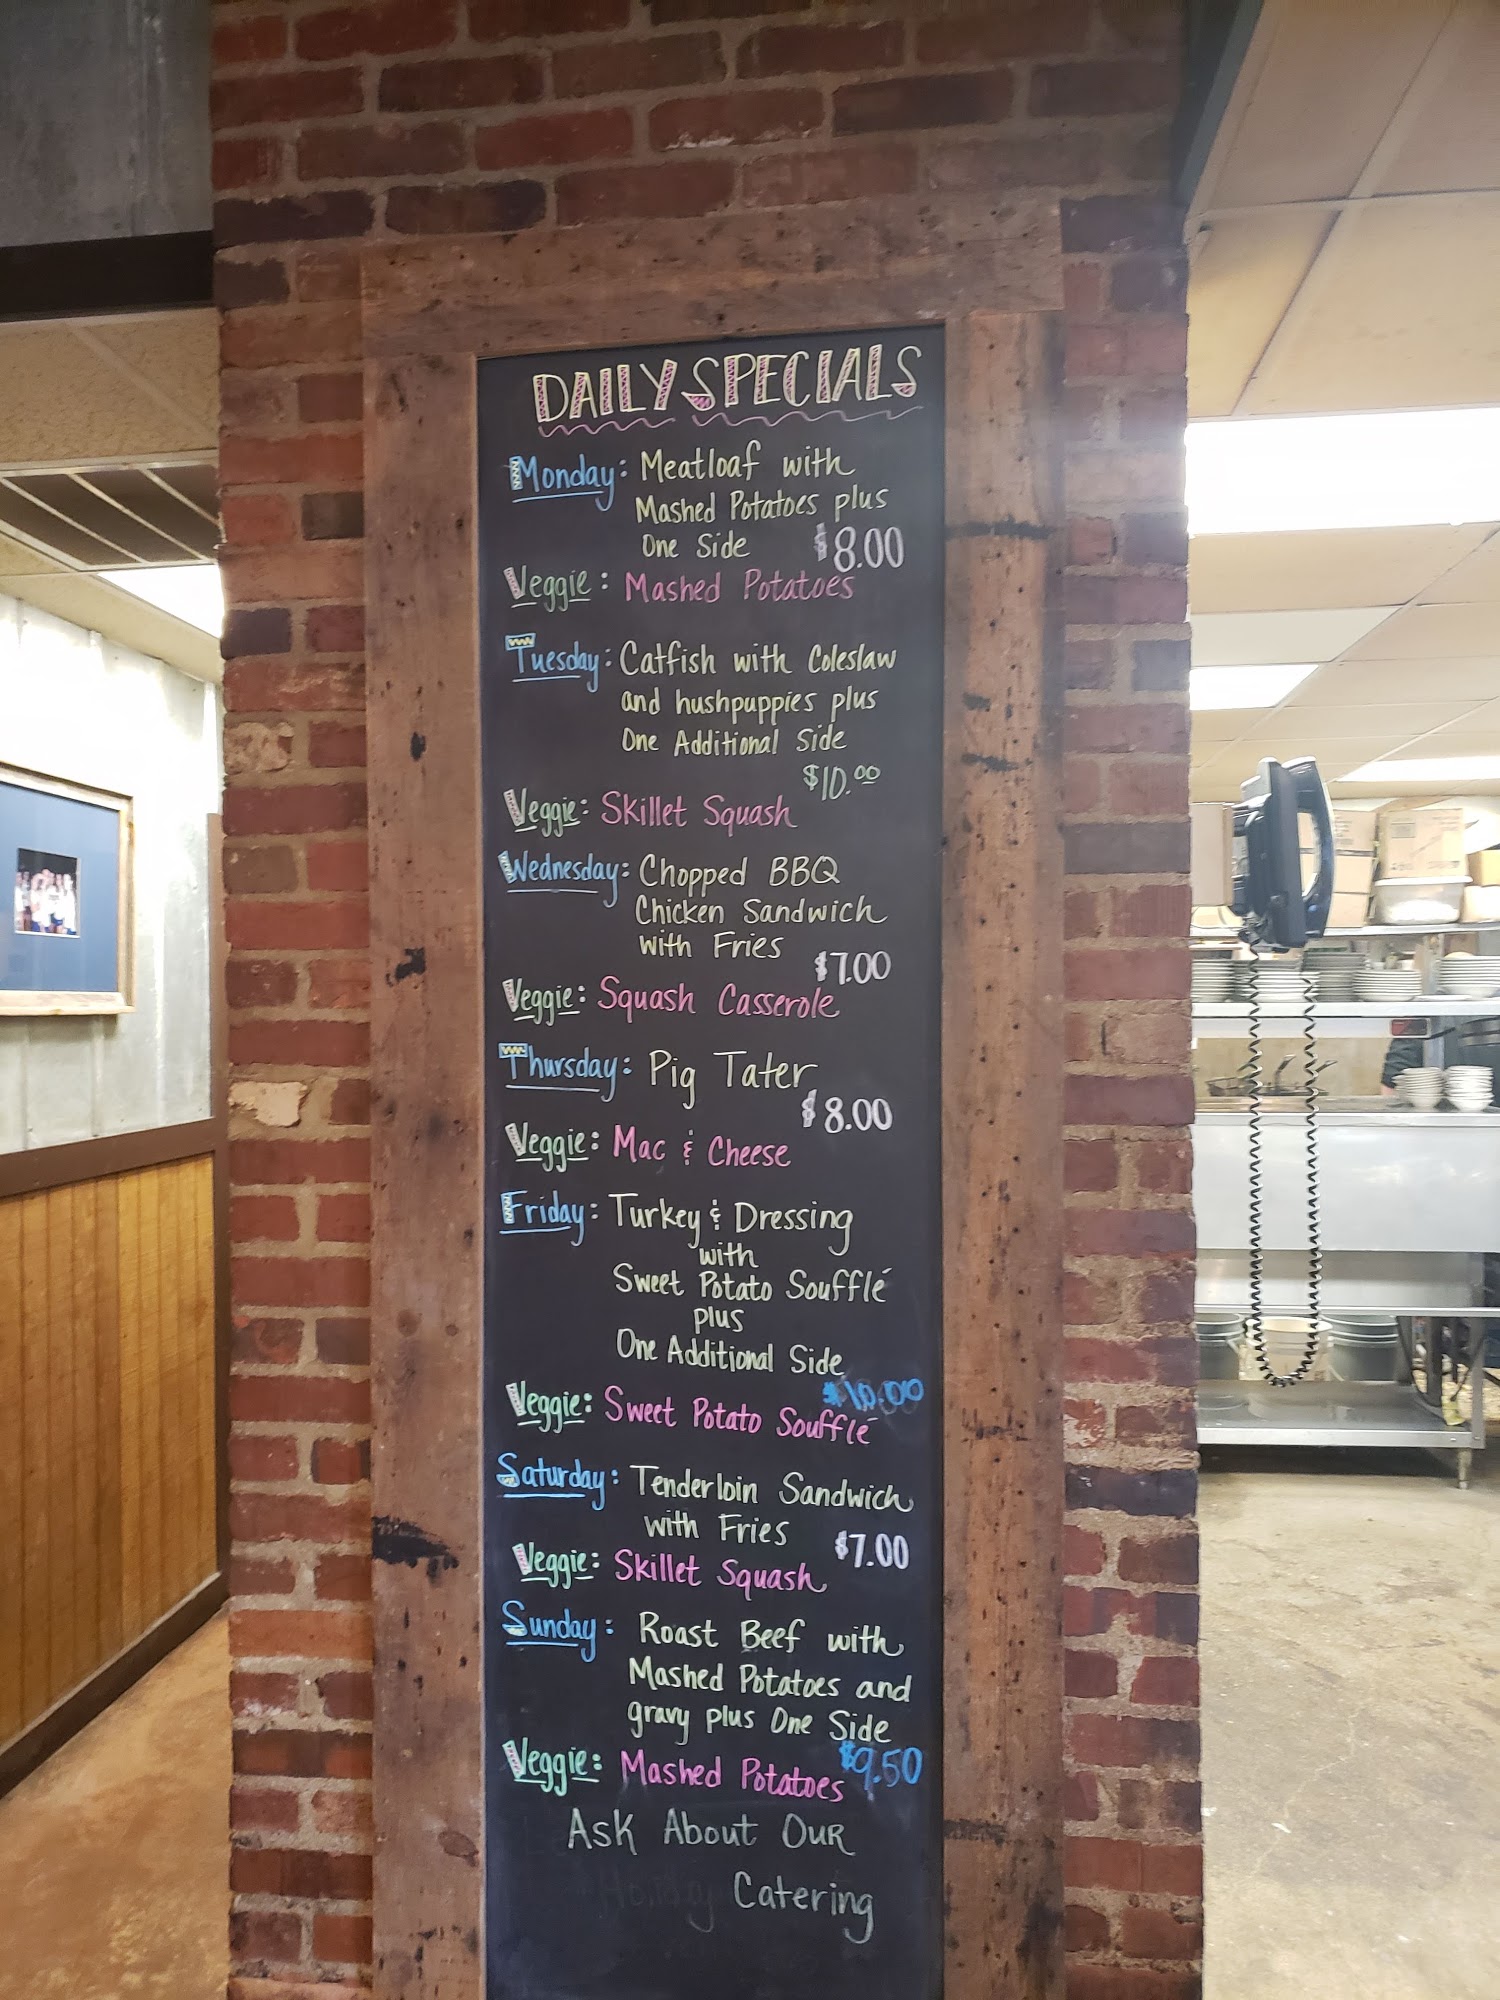 DAILY SPECIALS
Monday: Meatloaf with
Mashed Potatoes plus
One Side $8.00
Veggie: Mashed Potatoes
Tuesday: Catfish with Coleslaw
and hushpuppies plus
One Additional Side
$10.00
Veggie: Skillet Squash
Wednesday: Chopped BBQ
Chicken Sandwich
with Fries
$7.00
Veggie: Squash Casserole
Thursday: Pig Tater
$8.00
Veggie: Mac & Cheese
Friday: Turkey & Dressing
with
Sweet Potato Soufflé
plus
One Additional Side
$10.00
Veggie: Sweet Potato Soufflé
Saturday: Tenderloin Sandwich
with Fries $7.00
Veggie: Skillet Squash
Sunday: Roast Beef with
Mashed Potatoes and
gravy plus One Side
Veggie: Mashed Potatoes $9.50
Ask About Our
Catering